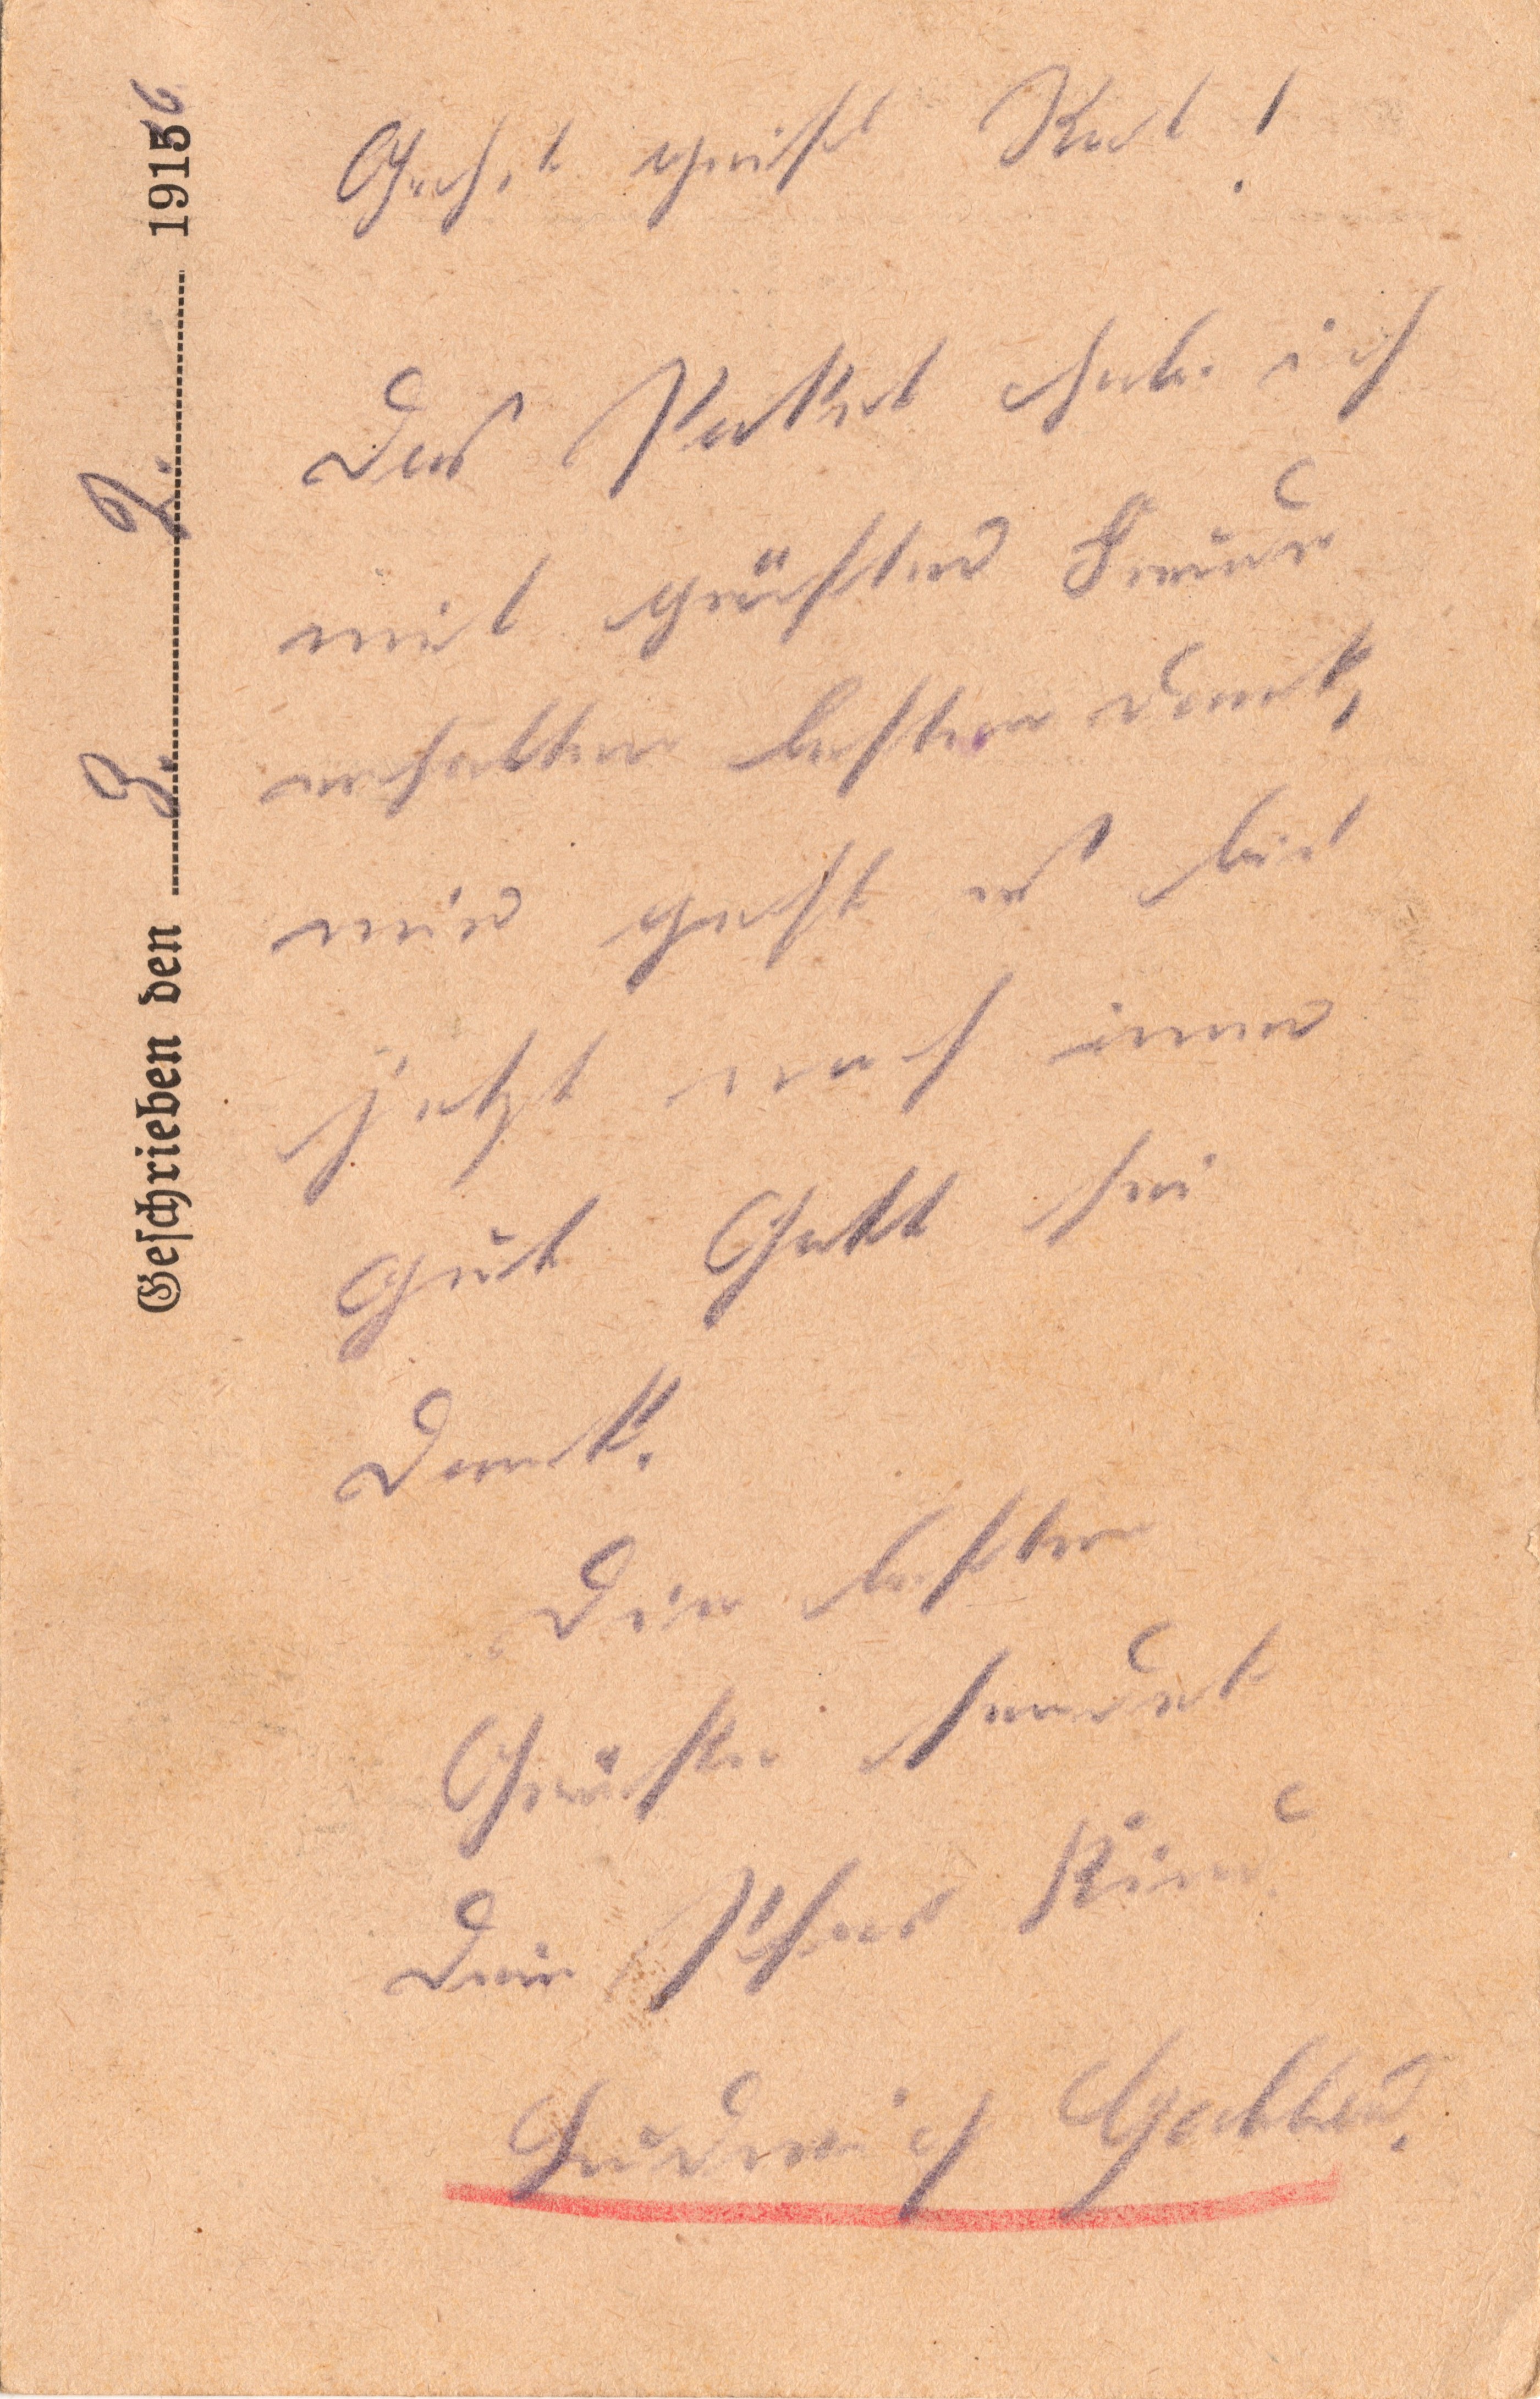 Geschrieben den 3. 2. 1916
Das Paket habe ich
mit größter Freude
erhalten besten Dank,
mir geht es bis
jetzt noch immer
gut Gott sei
Dank.
Die besten
Grüße sendet
Dein Kind
Ludwig